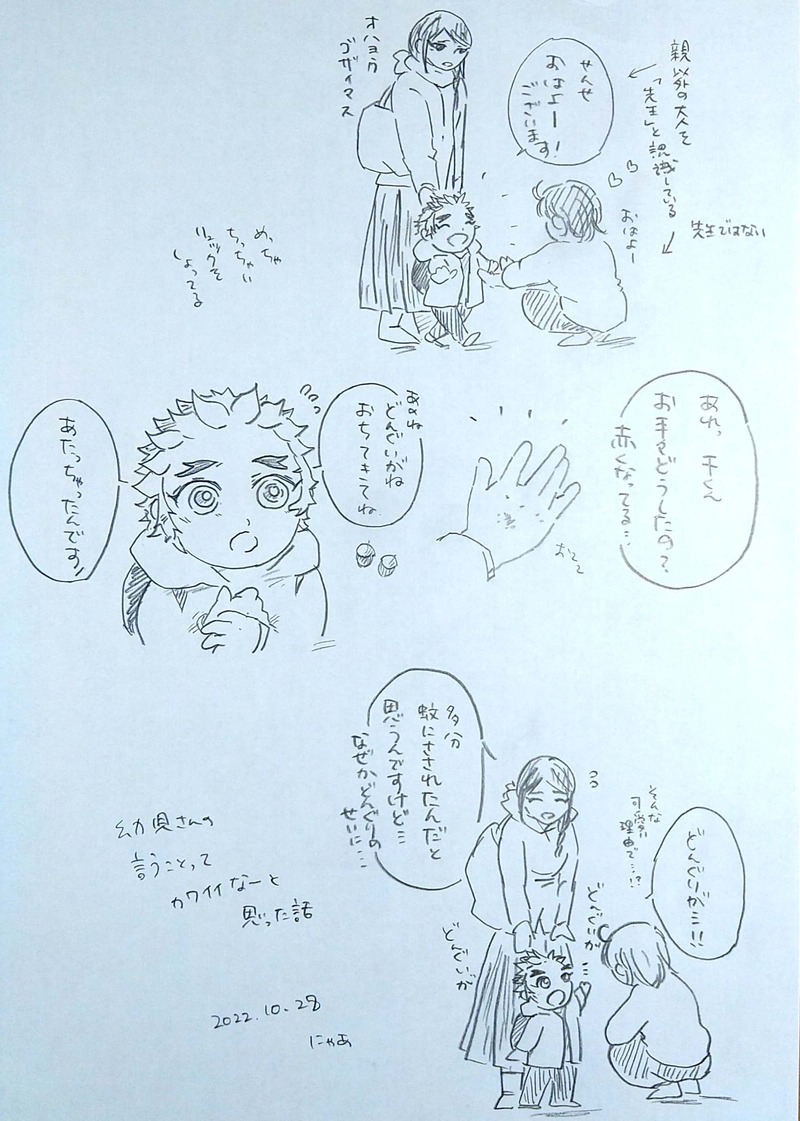 親以外の大人を
「先生」と認識している
先生ではない
せんせ
おはよー
ございます!
おはよー
オハヨウ
ゴザイマス
めっちゃ
ちっちゃい
リュックを
しょってる
あれっ 千くん
お手々どうしたの?
赤くなってる…
おてて
あのね
どんぐいがね
おちてきてね
あたっちゃったんです!
どんぐりが…!!
そんな
可愛い
理由で…!?
多分
蚊にさされたんだと
思うんですけど…
なぜかどんぐりの
せいに…
どんぐいが
どんぐいが
幼児さんの
言うことって
カワイイなーと
思った話
2022.10.28
にゃあ